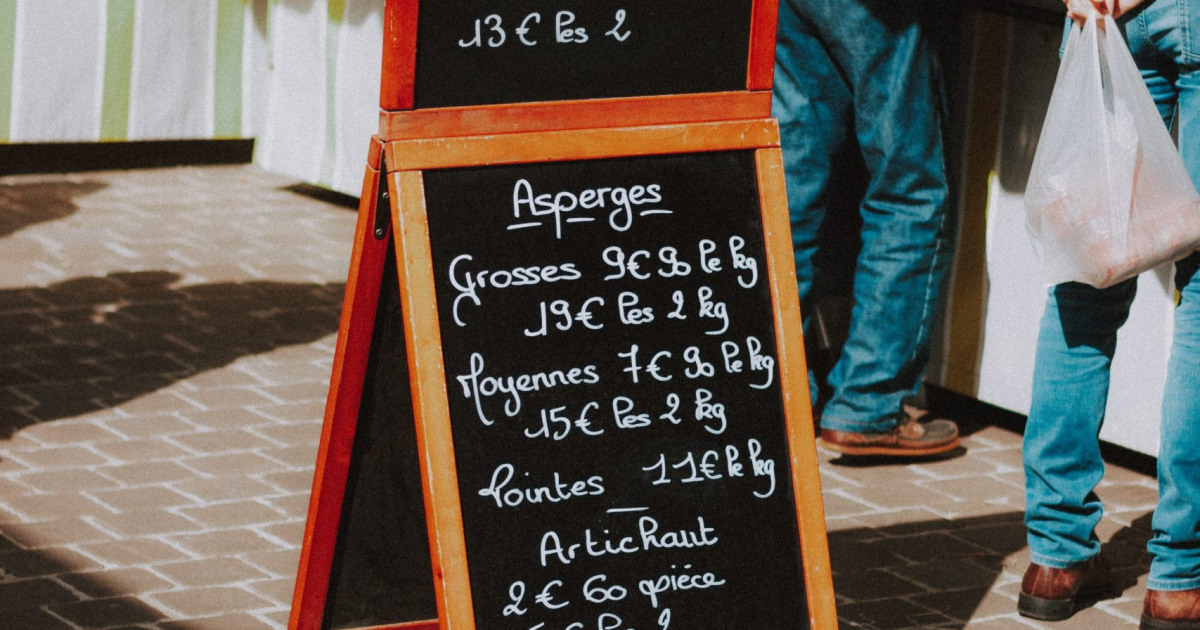 13€ les 2
Asperges
Grosses 9€90 le kg
19€ les 2 kg
Moyennes 7€90 le kg
15€ les 2 kg
Pointes 11€ le kg
Artichaut
2€60 pièce
5€ les 2